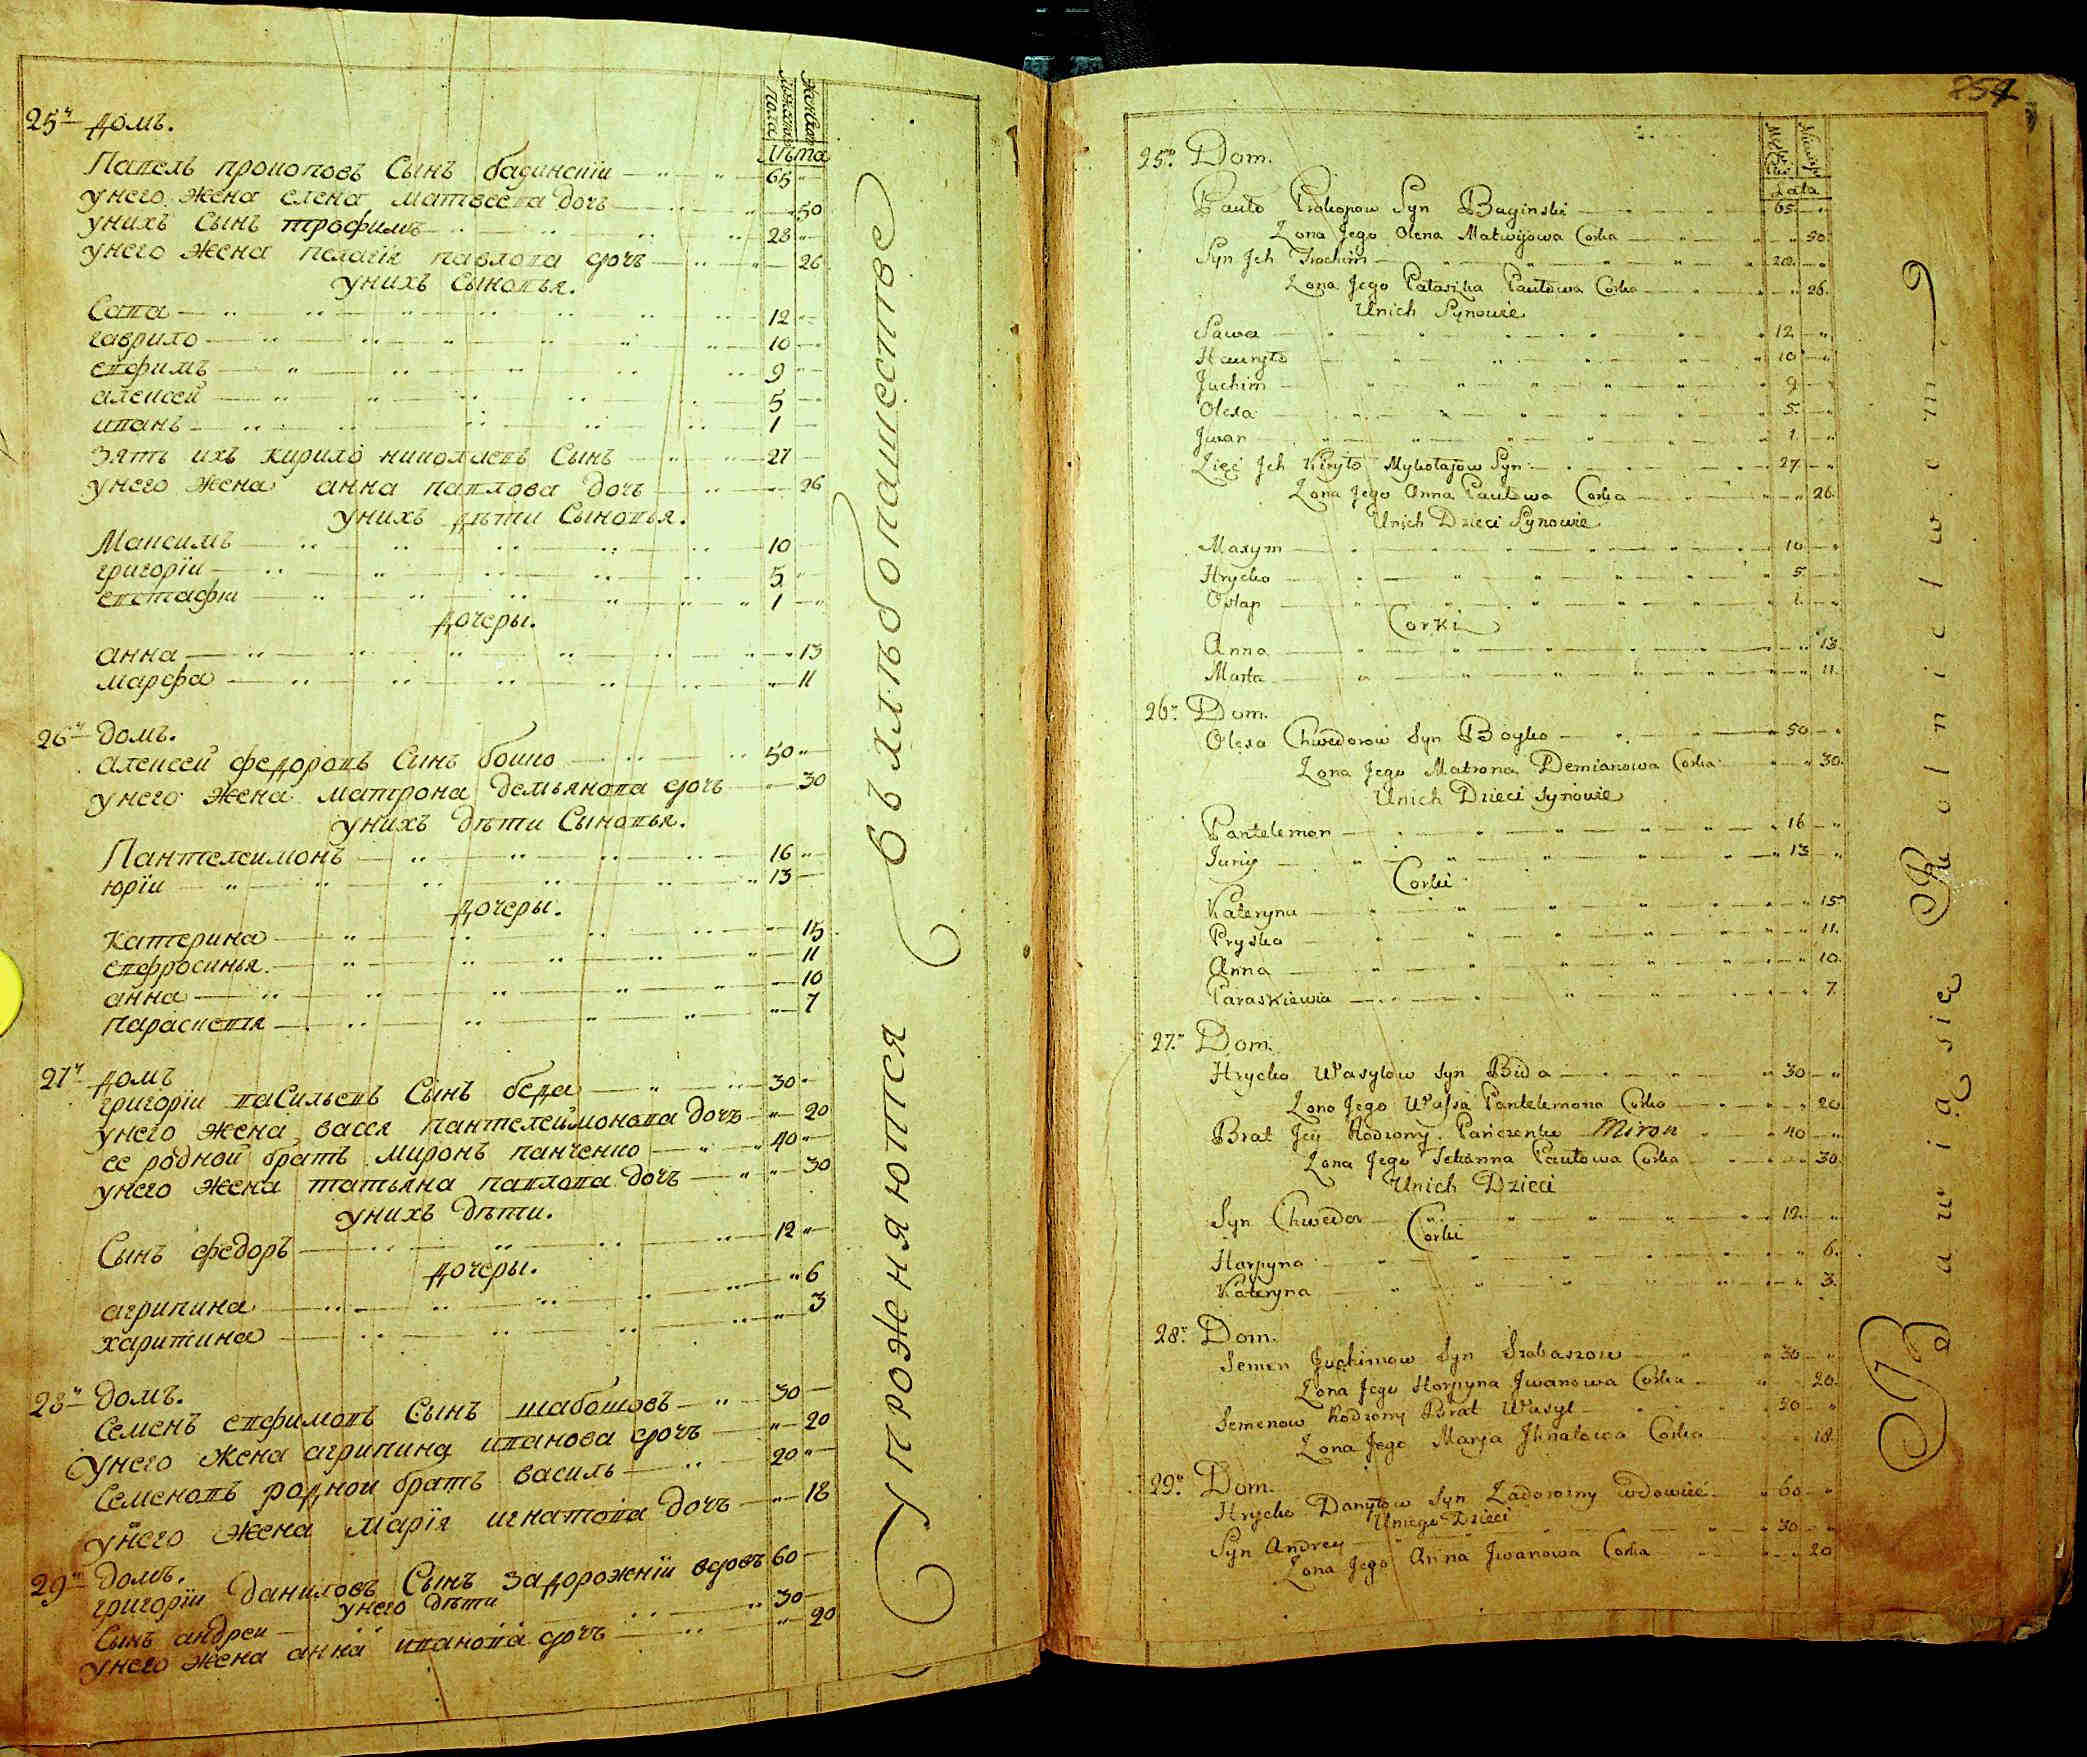 мужеска пола
женска
лѣта
25й домъ.
Павелъ прокоповъ Сынъ багинскiи 65
унего жена елена матвеева дочь 50
унихъ Сынъ трофимъ 28
унего жена пелагiя павлова дочь 26
унихъ Сыновья.
Сава 12
гаврило 10
евфимъ 9
алексей 5
иванъ 1
Зять ихъ кирило николаевъ Сынъ 27
унего жена анна павлова дочь 26
унихъ дѣти Сыновья.
Максимъ 10
григорiи 5
евстафiи 1
дочеры.
анна 13
марфа 11
26й домъ.
алексеи федоровъ Сынъ бойко 50
унего жена матрона демьянова дочь 30
унихъ дѣти Сыновья.
Пантелеимонъ 16
юрiи 13
дочеры.
катерина 15
евфросинья 11
анна 10
параскевiя 7
27й домъ
григорiи васильевъ Сынъ беда 30
унего жена васся пантелеймонова дочь 20
ее родной братъ миронъ панченко 40
унего жена татьяна павлова дочь 30
унихъ дѣти.
Сынъ федоръ 12
дочеры.
агрипина 6
харитина 3
28й домъ.
Семенъ евфимовъ Сынъ шабошовъ 30
унего жена агрипина иванова дочь 20
Семеновъ родной братъ василь 20
унего жена марiя игнатова дочь 18
29й домъ.
григорiи даниловъ Сынъ задорожнiи вдовъ 60
унего дѣти
Сынъ андреи 30
унего жена анна иванова дочь 20
Упроженяются въ хлѣбопашестве
254
Lata
25. Dom.
Pauło Prokopow Syn Baginski 65
Zona Jego Olena Matwijowa Corka 50
Syn Jch Trochim 28
Zona Jego Palaszka Paułowa Corka 26
Unich Synowie
Sawa 12
Hauryło 10
Juchim 9
Olexa 5
Jwan 1
Zięć Jch Kiryło Mykołajow Syn 27
Zona Jego Anna Paułowa Corka 26
Unich Dzieci Synowie
Maxym 10
Hrycko 5
Ostap 1
Corki
Anna 13
Marta 11
26. Dom.
Olexa Chwedorow Syn Boyko 50
Zona Jego Matrona Demianowa Corka 30
Unich Dzieci Synowie
Pantelemon 16
Juriy 13
Corki
Kateryna 15
Pryska 11
Anna 10
Paraskiewia 7
27. Dom.
Hrycko Wasylow Syn Bida 30
Zona Jego Wassa Pantelemona Corka 20
Brat Jey Rodzony Panczenko Miron 40
Zona Jego Tetianna Paułowa Corka 30
Unich Dzieci
Syn Chwedor 12
Corki
Horpyna 6
Kateryna 3
28. Dom.
Semen Juchimow Syn Szabaszow 30
Zona Jego Horpyna Jwanowa Corka 20
Semenow Rodzony Brat Wasyl 20
Zona Jego Marya Jhnatowa Corka 18
29. Dom.
Hrycko Danyłow Syn Zadorozny Wdowiec 60
Uniego Dzieci
Syn Andrey 30
Zona Jego Anna Jwanowa Corka 20
Bawią się Rolnictwem